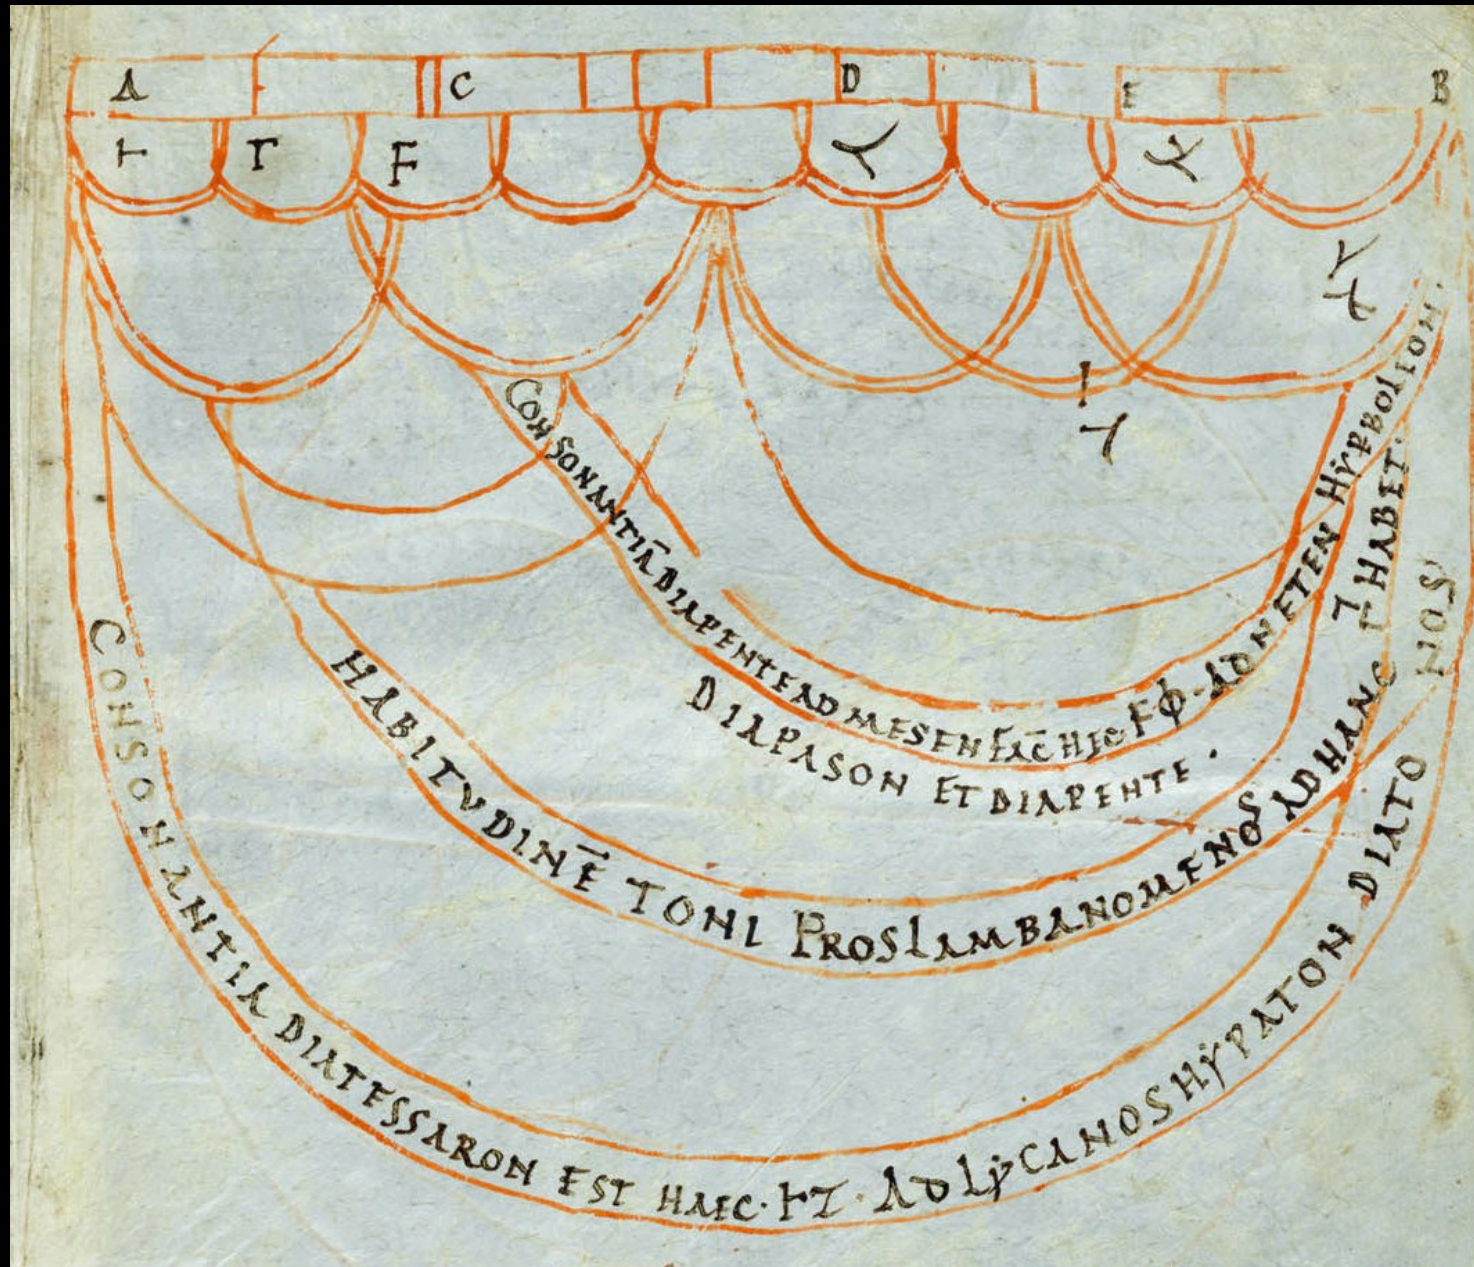 A C D E B
Ͱ Γ F
CONSONANTIĀ DIAPENTE AD MESEN FAC̄ HEC F Φ · AD NETEN HẎPBOLEON ·
DIAPASON ET DIAPENTE ·
HABITVDINĒ TONI PROSLAMBANOMENOS AD HANC Γ HABET ·
CONSONANTIA DIATESSARON EST HAEC · AD LẎCANOS HẎPATON DIATO
NOS